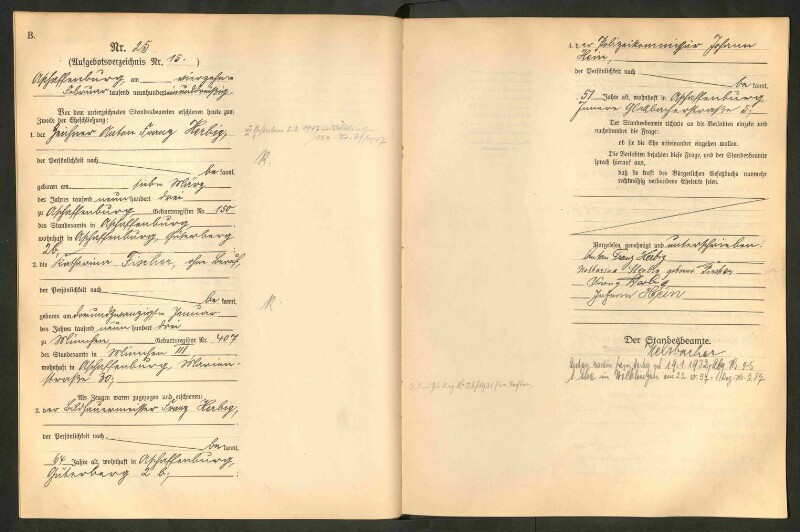 B.
Nr. 25
(Aufgebotsverzeichnis Nr. 15.)
Aschaffenburg, am vierzehn-
Februar tausend neunhundert einunddreißig.
Vor dem unterzeichneten Standesbeamten erschienen heute zum
Zwecke der Eheschließung:
1. der Zeichner Anton Franz Herbig,
der Persönlichkeit nach be kannt,
geboren am sieb- März
des Jahres tausend neunhundert drei
zu Aschaffenburg Geburtsregister Nr. 150
des Standesamts in Aschaffenburg
wohnhaft in Aschaffenburg, Güterberg
2b.
2. die Katharina Fischer, ohne Beruf,
der Persönlichkeit nach be kannt,
geboren am dreiundzwanzigst- Januar
des Jahres tausend neunhundert drei
zu München, Geburtsregister Nr. 407
des Standesamts in München III
wohnhaft in Aschaffenburg, Marien-
straße 30;
Als Zeugen waren zugezogen und erschienen:
3. der Bildhauermeister Franz Herbig,
der Persönlichkeit nach be kannt,
64 Jahre alt, wohnhaft in Aschaffenburg,
Güterberg 2 b;
4. der Polizeikommissär Johann
Hein,
der Persönlichkeit nach be kannt,
51 Jahre alt, wohnhaft in Aschaffenburg
Innere Glattbacherstraße 5;
Der Standesbeamte richtete an die Verlobten einzeln und
nacheinander die Frage:
ob sie die Ehe miteinander eingehen wollen.
Die Verlobten bejahten diese Frage, und der Standesbeamte
sprach hierauf aus,
daß sie kraft des Bürgerlichen Gesetzbuchs nunmehr
rechtmäßig verbundene Eheleute seien.
Vorgelesen, genehmigt und unterschrieben.
Anton Franz Herbig
Katharina Herbig geborne Fischer
Franz Herbig
Johann Hein
Der Standesbeamte.
19.1.1932